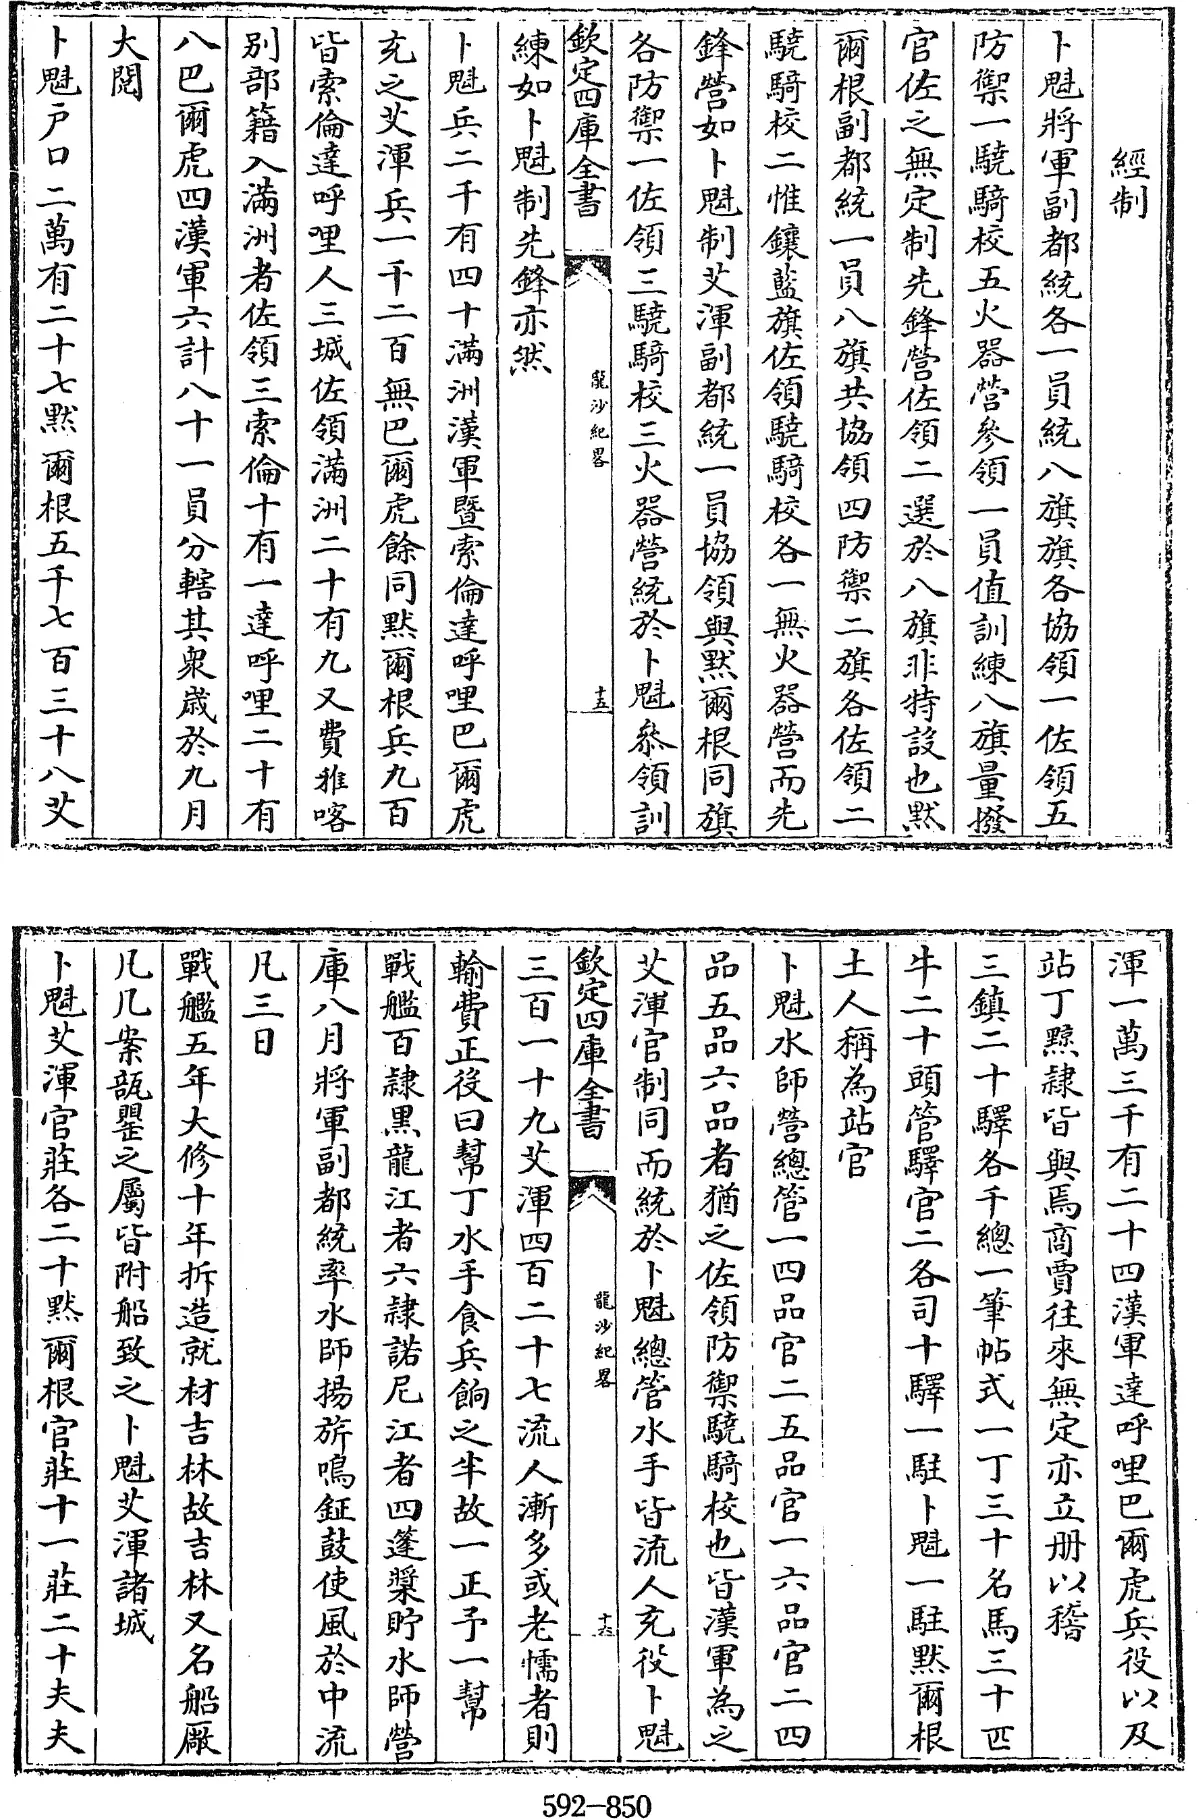 經制
卜魁將軍副都統各一員統八旗旗各協領一佐領五
防禦一驍騎校五火器營參領一員值訓練八旗量撥
官佐之無定制先鋒營佐領二選於八旗非特設也黙
爾根副都統一員八旗共協領四防禦二旗各佐領二
驍騎校二惟鑲藍旗佐領驍騎校各一無火器營而先
鋒營如卜魁制艾渾副都統一員協領與黙爾根同旗
各防禦一佐領三驍騎校三火器營統於卜魁叅領訓
欽定四庫全書
龍沙紀畧
十五
練如卜魁制先鋒亦然
卜魁兵二千有四十滿洲漢軍暨索倫達呼哩巴爾虎
充之艾渾兵一千二百無巴爾虎餘同黙爾根兵九百
皆索倫達呼哩人三城佐領滿洲二十有九又費雅喀
别部籍入滿洲者佐領三索倫十有一達呼哩二十有
八巴爾虎四漢軍六計八十一員分轄其衆歲於九月
大閱
卜魁戸口二萬有二十七黙爾根五千七百三十八艾
渾一萬三千有二十四漢軍達呼哩巴爾虎兵役以及
站丁黥隷皆與焉商賈往來無定亦立册以稽
三鎮二十驛各千總一筆帖式一丁三十名馬三十匹
牛二十頭管驛官二各司十驛一駐卜魁一駐黙爾根
土人稱為站官
卜魁水師營總管一四品官二五品官一六品官二四
品五品六品者猶之佐領防禦驍騎校也皆漢軍為之
艾渾官制同而統於卜魁總管水手皆流人充役卜魁
欽定四庫全書
龍沙紀畧
十六
三百一十九艾渾四百二十七流人漸多或老懦者則
輸費正役曰幫丁水手食兵餉之半故一正予一幫
戰艦百隷黑龍江者六隷諾尼江者四篷槳貯水師營
庫八月將軍副都統率水師揚旂鳴鉦鼓使風於中流
凡三日
戰艦五年大修十年拆造就材吉林故吉林又名船廠
凡几案瓿罌之屬皆附船致之卜魁艾渾諸城
卜魁艾渾官莊各二十黙爾根官莊十一莊二十夫夫
592-850